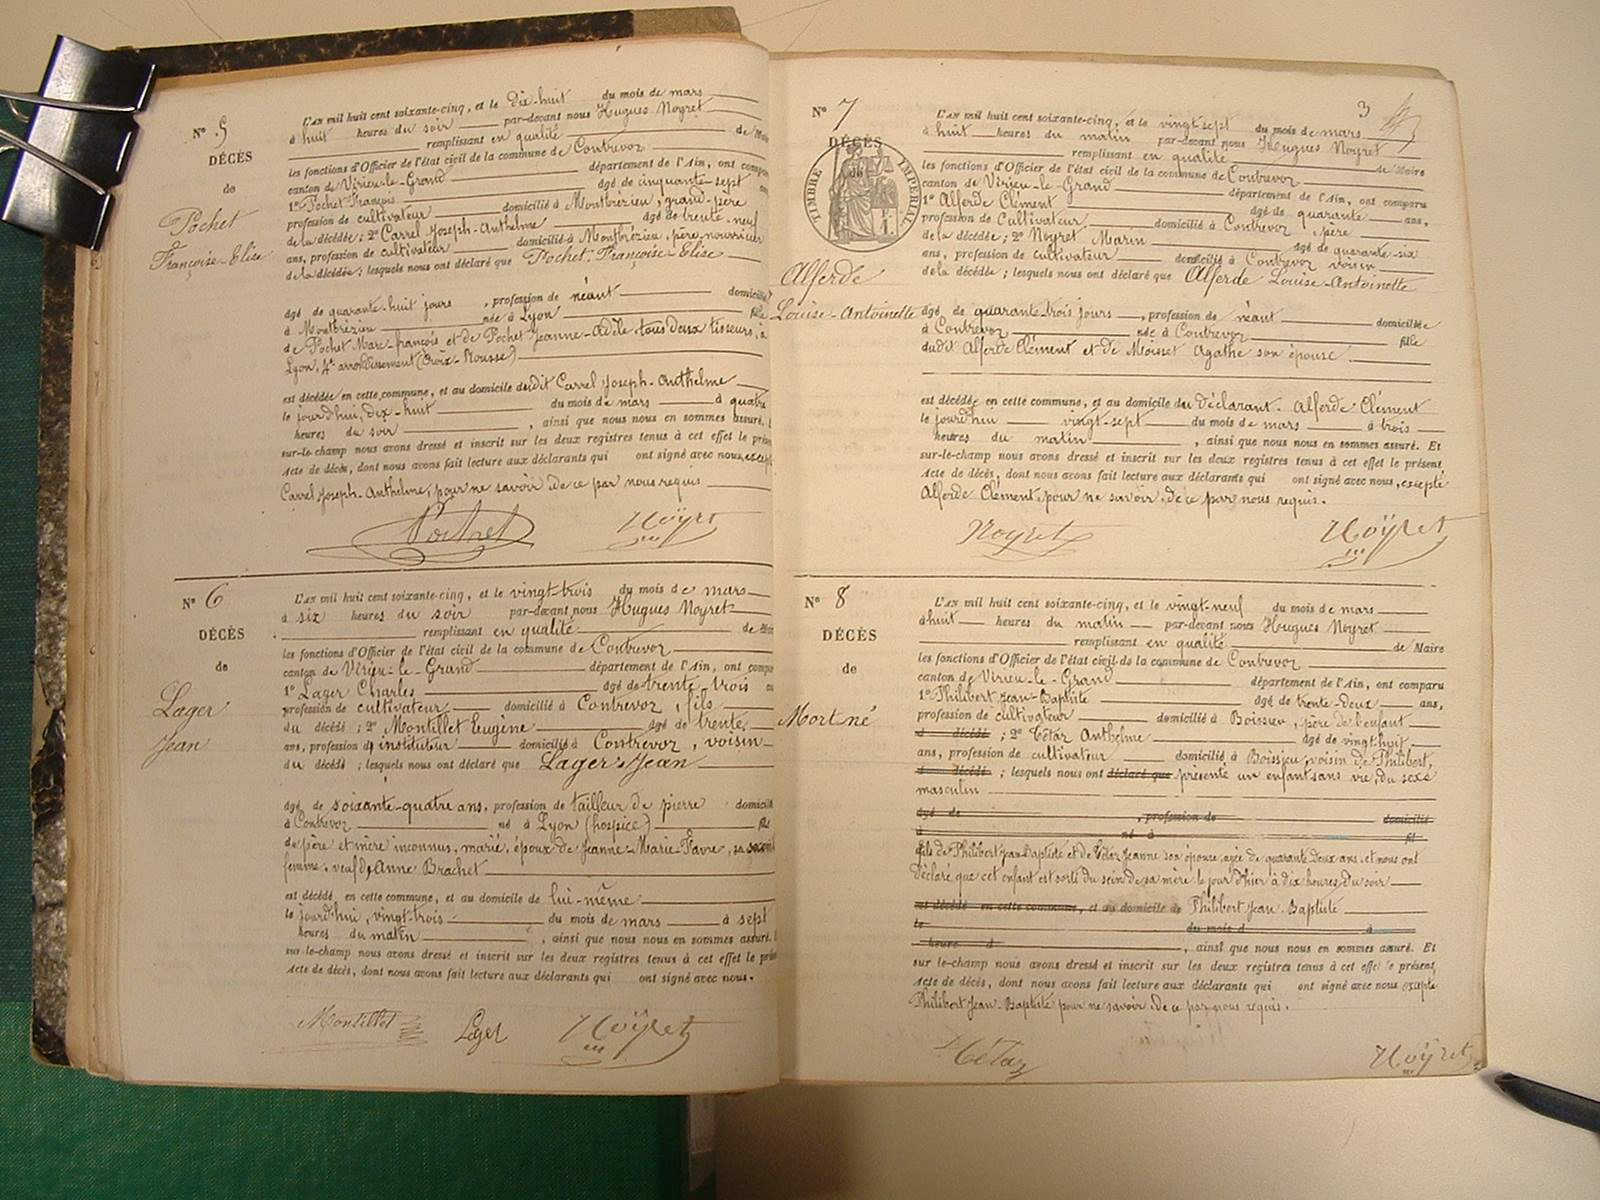 N° 5
DÉCÈS
de
Pochet
Françoise-Elise
L'AN mil huit cent soixante-cinq, et le dix-huit du mois de mars
à huit heures du soir par-devant nous Hugues Noyret
remplissant en qualité de Maire
les fonctions d'Officier de l'état civil de la commune de Contrevoz
canton de Virieu-le-Grand département de l'Ain, ont comparu
1° Pochet François âgé de cinquante-sept
profession de cultivateur domicilié à Montbrézieu, grand-père
de la décédée; 2° Carrel Joseph-Anthelme âgé de trente-neuf
ans, profession de cultivateur domicilié à Montbrézieu, père nourricier
de la décédée; lesquels nous ont déclaré que Pochet, Françoise-Elise
âgé de quarante-huit jours, profession de néant domiciliée
à Montbrézieu née à Lyon fille
de Pochet Marc-françois et de Pochet Jeanne-Adèle tous deux tisseurs, à
Lyon, 4e arrondissement (Croix-Rousse)
est décédée en cette commune, et au domicile dudit Carrel Joseph-Anthelme
le jourd'hui, dix-huit du mois de mars à quatre
heures du soir, ainsi que nous nous en sommes assuré.
sur-le-champ nous avons dressé et inscrit sur les deux registres tenus à cet effet le présen
acte de décès, dont nous avons fait lecture aux déclarants qui ont signé avec nous, excepté
Carrel Joseph-Anthelme, pour ne savoir, de ce par nous requis
Pochet Noÿret
N° 6
DÉCÈS
de
Lager
Jean
L'AN mil huit cent soixante-cinq, et le vingt-trois du mois de mars
à six heures du soir par-devant nous Hugues Noyret
remplissant en qualité de Maire
les fonctions d'Officier de l'état civil de la commune de Contrevoz
canton de Virieu-le-Grand département de l'Ain, ont comparu
1° Lager Charles âgé de trente-trois
profession de cultivateur domicilié à Contrevoz, fils
du décédé; 2° Montillet Eugène âgé de trente
ans, profession d'instituteur domicilié à Contrevoz, voisin
du décédé; lesquels nous ont déclaré que Lager Jean
âgé de soixante-quatre ans, profession de tailleur de pierre domicilié
à Contrevoz né à Lyon (hospice) fils
de père et mère inconnus, marié, époux de Jeanne-Marie-Favre, sa seconde
femme, veuf d'Anne Brachet
est décédé en cette commune, et au domicile de lui-même
le jourd'hui, vingt-trois du mois de mars à sept
heures du matin, ainsi que nous nous en sommes assuré.
sur-le-champ nous avons dressé et inscrit sur les deux registres tenus à cet effet le présen
acte de décès, dont nous avons fait lecture aux déclarants qui ont signé avec nous.
Montillet Lager Noÿret
3
N° 7
DÉCÈS
de
TIMBRE IMPERIAL
Alferde
Louise-Antoinette
L'AN mil huit cent soixante-cinq, et le vingt-sept du mois de mars
à huit heures du matin par-devant nous Hugues Noyret
remplissant en qualité de Maire
les fonctions d'Officier de l'état civil de la commune de Contrevoz
canton de Virieu-le-Grand département de l'Ain, ont comparu
1° Alferde Clément âgé de quarante ans,
profession de Cultivateur domicilié à Contrevoz, père
de la décédée; 2° Noyret Marin âgé de quarante-six
ans, profession de cultivateur domicilié à Contrevoz voisin
de la décédée; lesquels nous ont déclaré que Alferde Louise-Antoinette
âgé de quarante-trois jours, profession de néant domiciliée
à Contrevoz née à Contrevoz fille
dudit Alferde Clément et de Moisset Agathe son épouse
est décédée en cette commune, et au domicile du déclarant. Alferde Clément
le jourd'hui vingt-sept du mois de mars à trois
heures du matin, ainsi que nous nous en sommes assuré. Et
sur-le-champ nous avons dressé et inscrit sur les deux registres tenus à cet effet le présent
acte de décès, dont nous avons fait lecture aux déclarants qui ont signé avec nous, excepté
Alferde Clément, pour ne savoir, de ce par nous requis.
Noyret Noÿret
N° 8
DÉCÈS
de
Mort né
L'AN mil huit cent soixante-cinq, et le vingt-neuf du mois de mars
à huit heures du matin par-devant nous Hugues Noyret
remplissant en qualité de Maire
les fonctions d'Officier de l'état civil de la commune de Contrevoz
canton de Virieu-le-Grand département de l'Ain, ont comparu
1° Philibert Jean-Baptiste âgé de trente-deux ans,
profession de cultivateur domicilié à Boissieu, père de l'enfant
d décédé; 2° Tétaz Anthelme âgé de vingt-huit
ans, profession de cultivateur domicilié à Boissieu, voisin de Philibert,
d décédé; lesquels nous ont déclaré que présenté un enfant sans vie, du sexe
masculin
âgé de, profession de domicilié
à né à fil
fils de Philibert Jean-Baptiste et de Tétaz Jeanne son épouse agée de quarante deux ans, et nous ont
déclaré que cet enfant est sorti du sein de sa mère le jour d'hier à dix heures du soir
est décédé en cette commune, et au domicile de Philibert Jean-Baptiste
le du mois d à
heure d, ainsi que nous nous en sommes assuré. Et
sur le-champ nous avons dressé et inscrit sur les deux registres tenus à cet effet le présent
acte de décès, dont nous avons fait lecture aux déclarants qui ont signé avec nous excepté
Philibert Jean-Baptiste pour ne savoir, de ce par nous requis.
Tétaz Noÿret